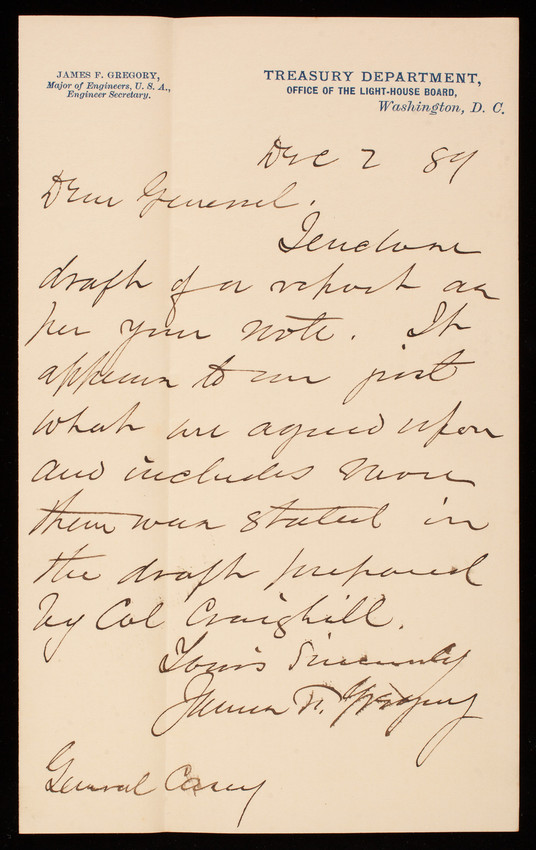 JAMES F. GREGORY,
Major of Engineers, U. S. A.,
Engineer Secretary.
TREASURY DEPARTMENT,
OFFICE OF THE LIGHT-HOUSE BOARD,
Washington, D. C.
Dec 2 89
Dear General.
I enclose
draft of a report as
per your note. It
appears to me just
what we agreed upon
and includes more
than was stated in
the draft prepared
by Col Craighill.
Yours Sincerely
James F. Gregory
General Casey